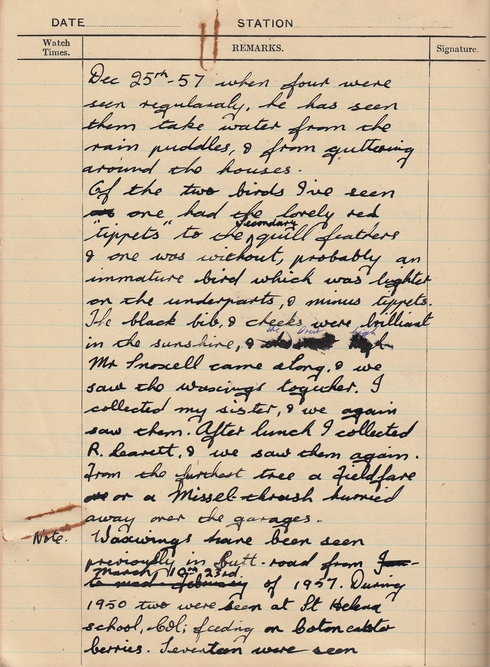 DATE STATION
Watch Times. REMARKS. Signature.
Dec 25th-57 when four were
seen regularaly, he has seen
them take water from the
rain puddles, & from guttering
around the houses.
Of the two birds I've seen
one had the lovely red
"tippets" to the secondary quill feathers
& one was without, probably an
immature bird which was lighter
on the underparts, & minus tippets.
The black bib, & cheeks were brilliant
in the sunshine, & the crest high
Mr Snoxell came along, & we
saw the waxwings together. I
collected my sister, & we again
saw them. After lunch I collected
R. Learett, & we saw them again.
From the furthest tree a Fieldfare
or a Missel-thrush hurried
away over the garages.
Note. Waxwings have been seen
previously in Butt-road from
March 10th 23rd,
of 1957. During
1950 two were seen at St Helena
school, Col; feeding on Cotoneaster
berries. Seventeen were seen